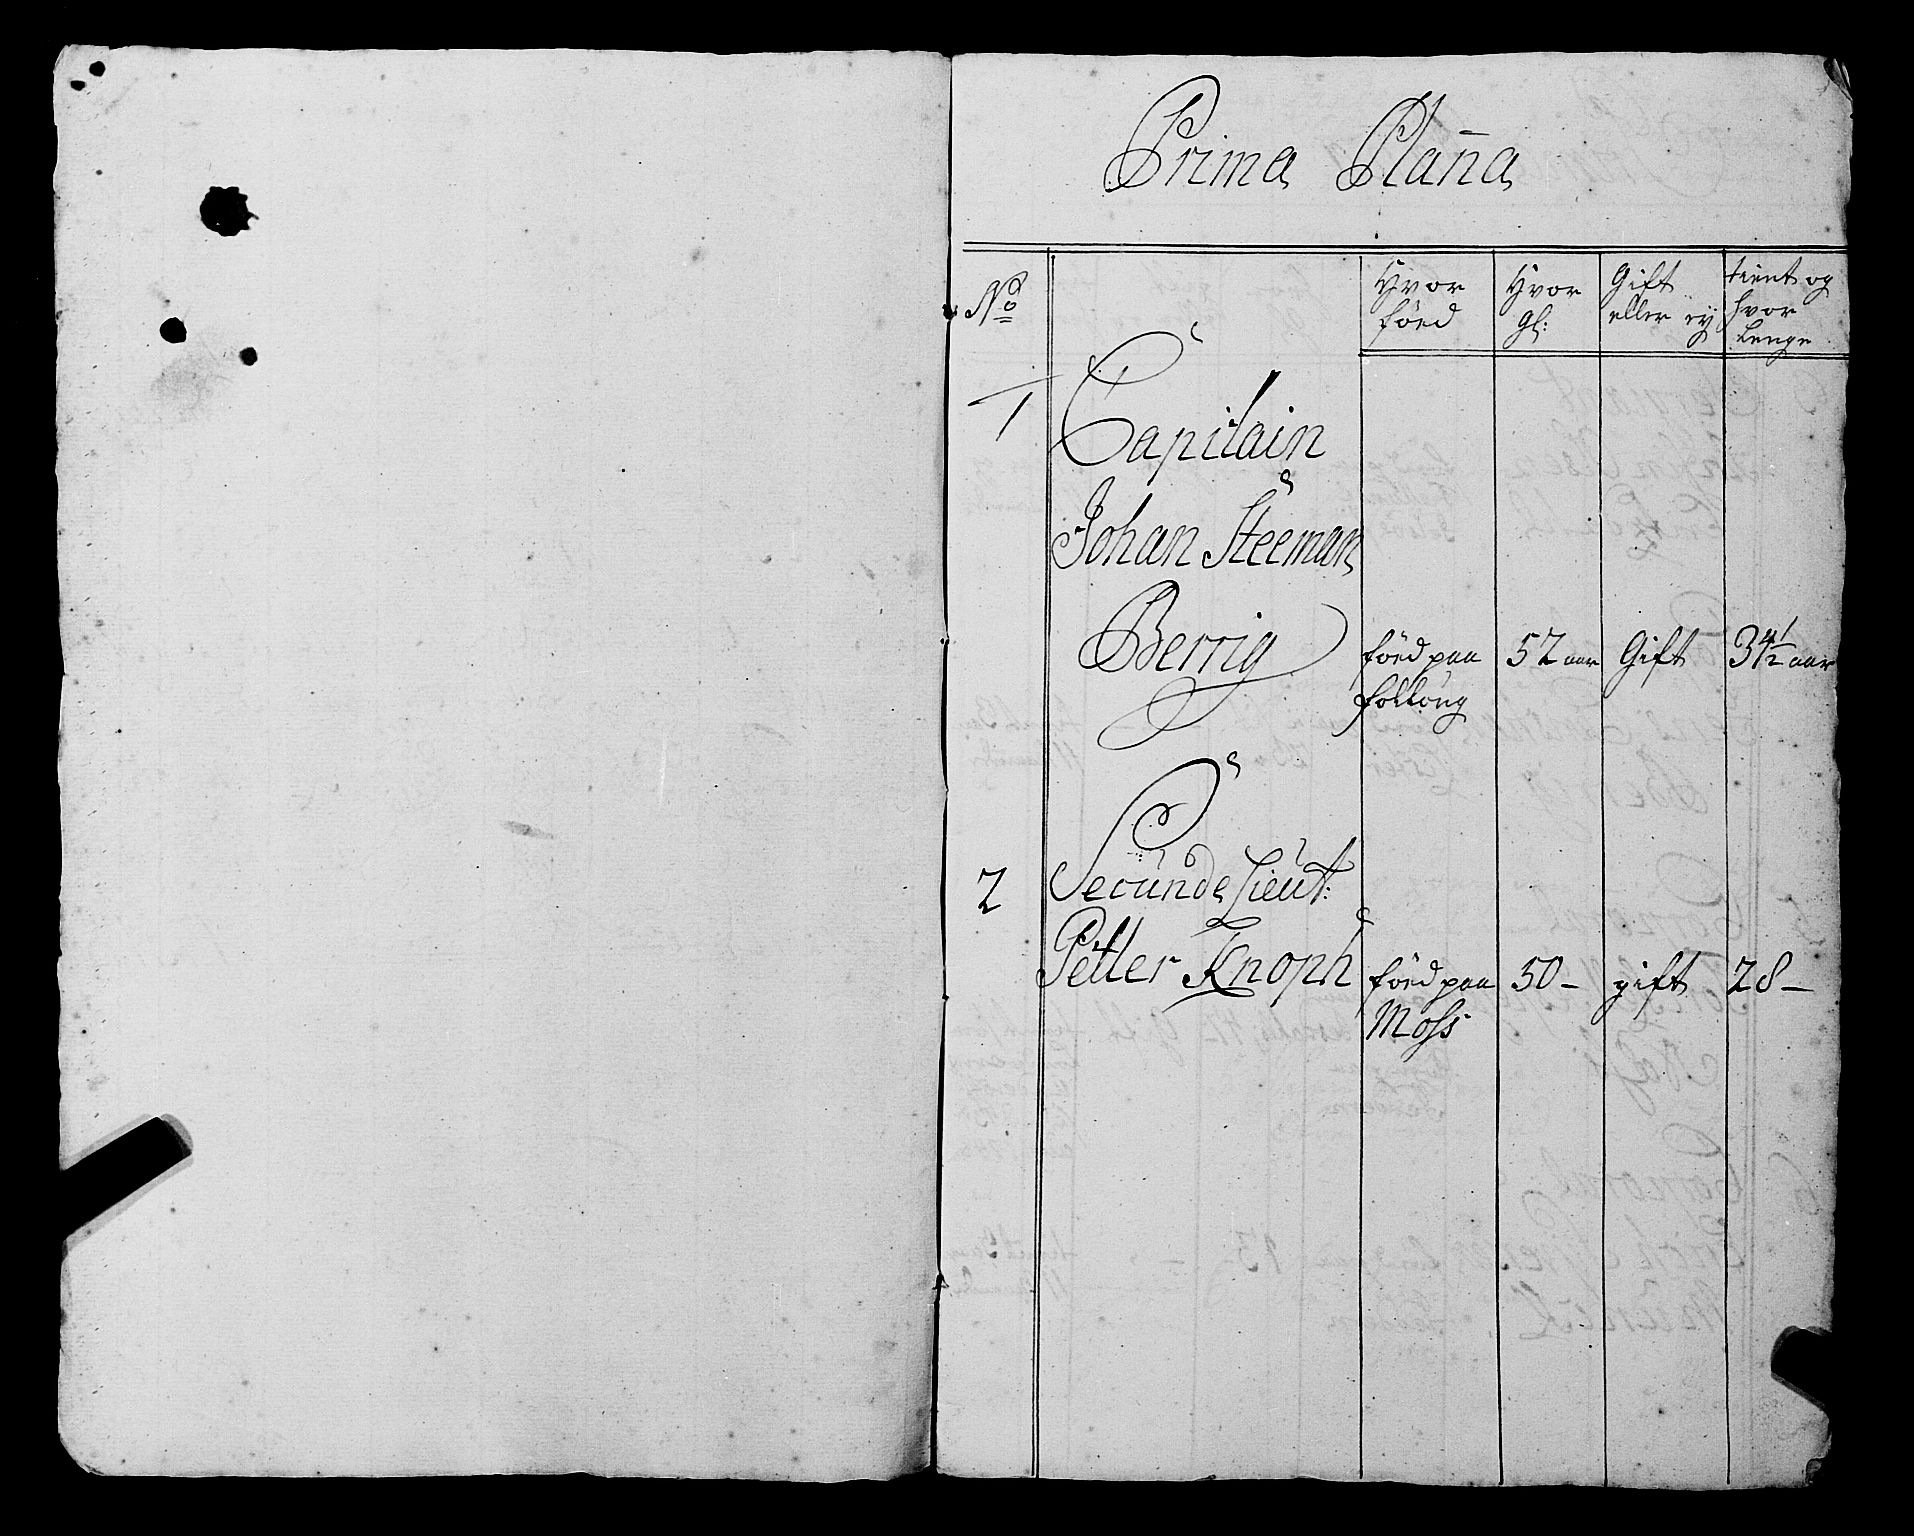 Prima Plan̄a
No
Hvor
föed
Hvor
gl:
Gift
eller ey
tient og
hvor
lenge
1
Capitain
Johan Steeman
Berrig
föed paa
52 aar
Gift
34 1/2 aar
2
Secunde Lieut:
Petter Knoph
föed paa
Moss
50 —
gift
28 —